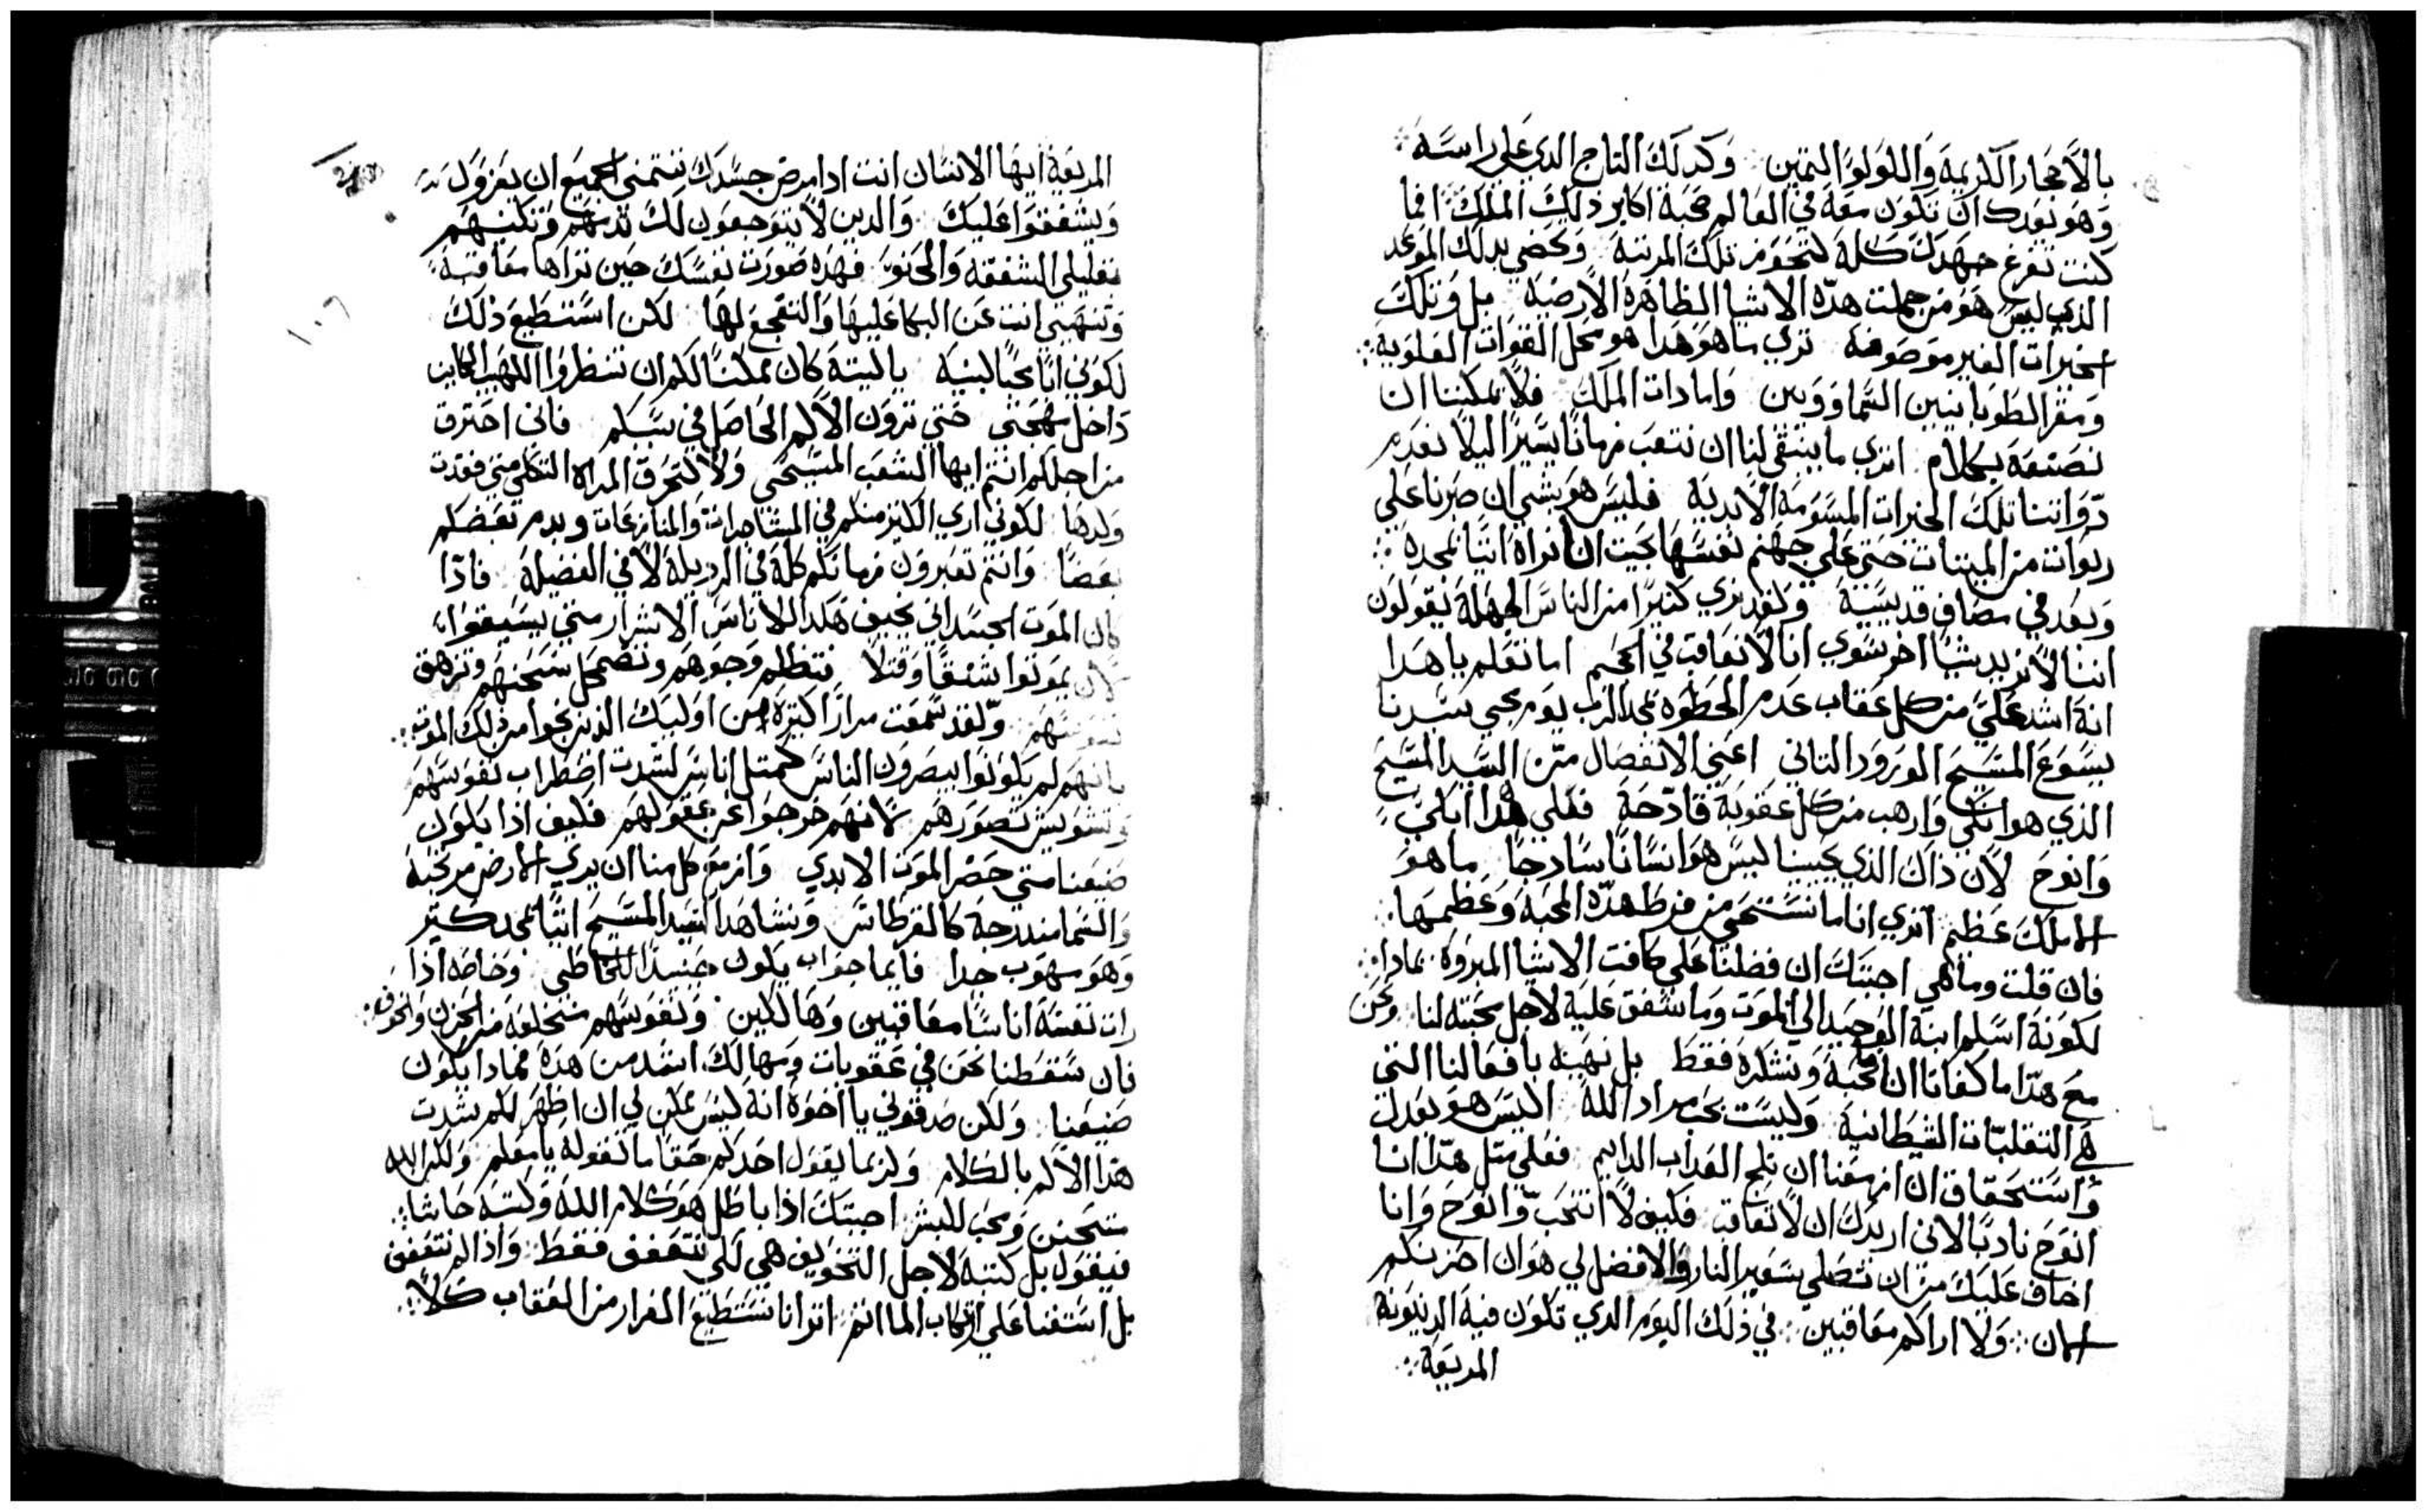 بالاحجار الكريمة واللولو التمين وكدلك التاج الدي علي راسه
وهو نوعدك ان تكون معه في العالم محبة اكابر دلك الملك افما
كنت تفرغ جهدك كله لتحضو من تلك المرتبة وتحضي بدلك الموعد
الذي ليس هو من جملت هده الاشيا الظاهرة الارضية بل وتلك
الخيرات الغير موصوفة تري ما هو هدا هو محل القوات العلوية
ومقر الطوبانيين السماوويين وامادات الملك فلا يمكننا ان
نصنعه بكلام اتري ما ينبغي لنا ان نتعب زمانا يسيرا ليلا نعدم
دواتنا تلك الخيرات المسومة الابدية فليس هو بشي ان صبرنا علي
ربوات من الميتات حتي علي جهنم نفسها بحيت ان نراه اتيا بمجده
ونعد في مصاف قديسيه ولقد نري كتيرا من الناس الجهلة يقولون
اننا لا نريد شيا اخر سوي انا لا نعاقب في الجحيم اما تعلم يا هدا
انه اشد علي من كل عقاب عدم الحظوة بمجد الرب يوم يجي سيدنا
يسوع المسيح الورود التاني اعني الانفصال من السيد المسيح
الذي هو انكي وارهب من كل عقوبة فادحة فعلي هدا ابكي
وانوح لان ذاك الذي يحبنا ليس هو انسانا سادجا ما هو
الا ملك عظيم اتري انا ما نستحي من فرط هده المحبة وعظمها
فان قلت وما هي اجبتك ان فضلنا علي كافت الاشيا المبروة بمادا
لكونه اسلم ابنه الوحيد الي الموت وما شفق عليه لاجل محبته لنا ونحن
مع هدا ما كفانا ان ما نحبه ونشكره فقط بل نهينه بافعالنا التي
هي التقلبات الشيطانية وليست بحب مراد الله اليس هو بعدل
واستحقاق ان ازمعنا ان نلج العداب الدايم فعلي متل هدا انا
انوح نادبا لاني اريدك ان لا تعاقب فكيف لا انتحب وانوح وانا
اخاف عليك من ان تصلي بسعير النار والافضل لي هو ان احزنكم
الان ولا اراكم معاقبين في ذلك اليوم الدي تكون فيه الدينونة
المريعة
المريعة ايها الانسان انت ادا مرض جسدك تتمني الجميع ان يعزول
ويشفقوا عليك والدين لا يتوجعون لك تدمهم وتكنيهم
بقليلي الشفقة والحنو فهده صورت نفسك حين تراها معاقبة
وتنهيني انت عن البكا عليها والتفجع لها لكن استطيع ذلك
لكوني انا محبا لبنيه ياليته كان ممكنا لكم ان تنظروا اللهيب الكاين
داخل مهجتي حتي ترون الالم الحاصل في سبيلكم فاني احترق
من اجلكم انتم ايها الشعب المسيحي ولا كتحرق المراة التكلي متي فقدت
ولدها لكوني اري الكتير منكم في المشاجرات والمنازعات ويدم بعضكم
بعضا وانتم تعبرون زمانكم كله في الرديلة لا في الفضيلة فادا
كان الموت الجسداني يخيف هكدا للاناس الاشرار متي يسيقوا
لان يموتوا شنقا وقتلا فتظلم وجوههم وتضمحل سحنهم وتزهق
نفوسهم ولقد سمعت مرارا كتيرة من اوليك الذين نجوا من ذلك الموت
بانهم لم يكونوا يبصرون الناس كمتل اناس لشدت اضطراب نفوسهم
وتشويش تصورهم لانهم خرجوا عن عقولهم فكيف اذا يكون
صنيعنا متي حضر الموت الابدي وازمع كل منا ان يري الارض مرتجة
والسما مندرجة كالقرطاس ونشاهد السيد المسيح اتيا بمجد كتير
وهو مهوب جدا فايما جواب يكون حينيد للخاطي وخاصه اذا
رات نفسه اناسا معاقبين وهالكين ونفوسهم منخلعه من الحزن والخوف
فان سقطنا نحن في عقوبات ومهالك اشد من هده فمادا يكون
صنيعنا ولكن صدقوني يا اخوة انه ليس يمكن لي ان اظهر لكم شدت
هذا الالم بالكلام ولربما يقول احدكم حقا ما تقوله يا معلم ولكن الله
متحنن ومحب للبشر اجبتك اذا باطل هو كلام الله وكتبه حاشا
فيقول بل كتبه لاجل التخويف هي لكي نتعفف فقط واذا لم نتعفف
بل استغنا علي ارتكاب الماانم اترانا نستطيع الفرار من العقاب كلا